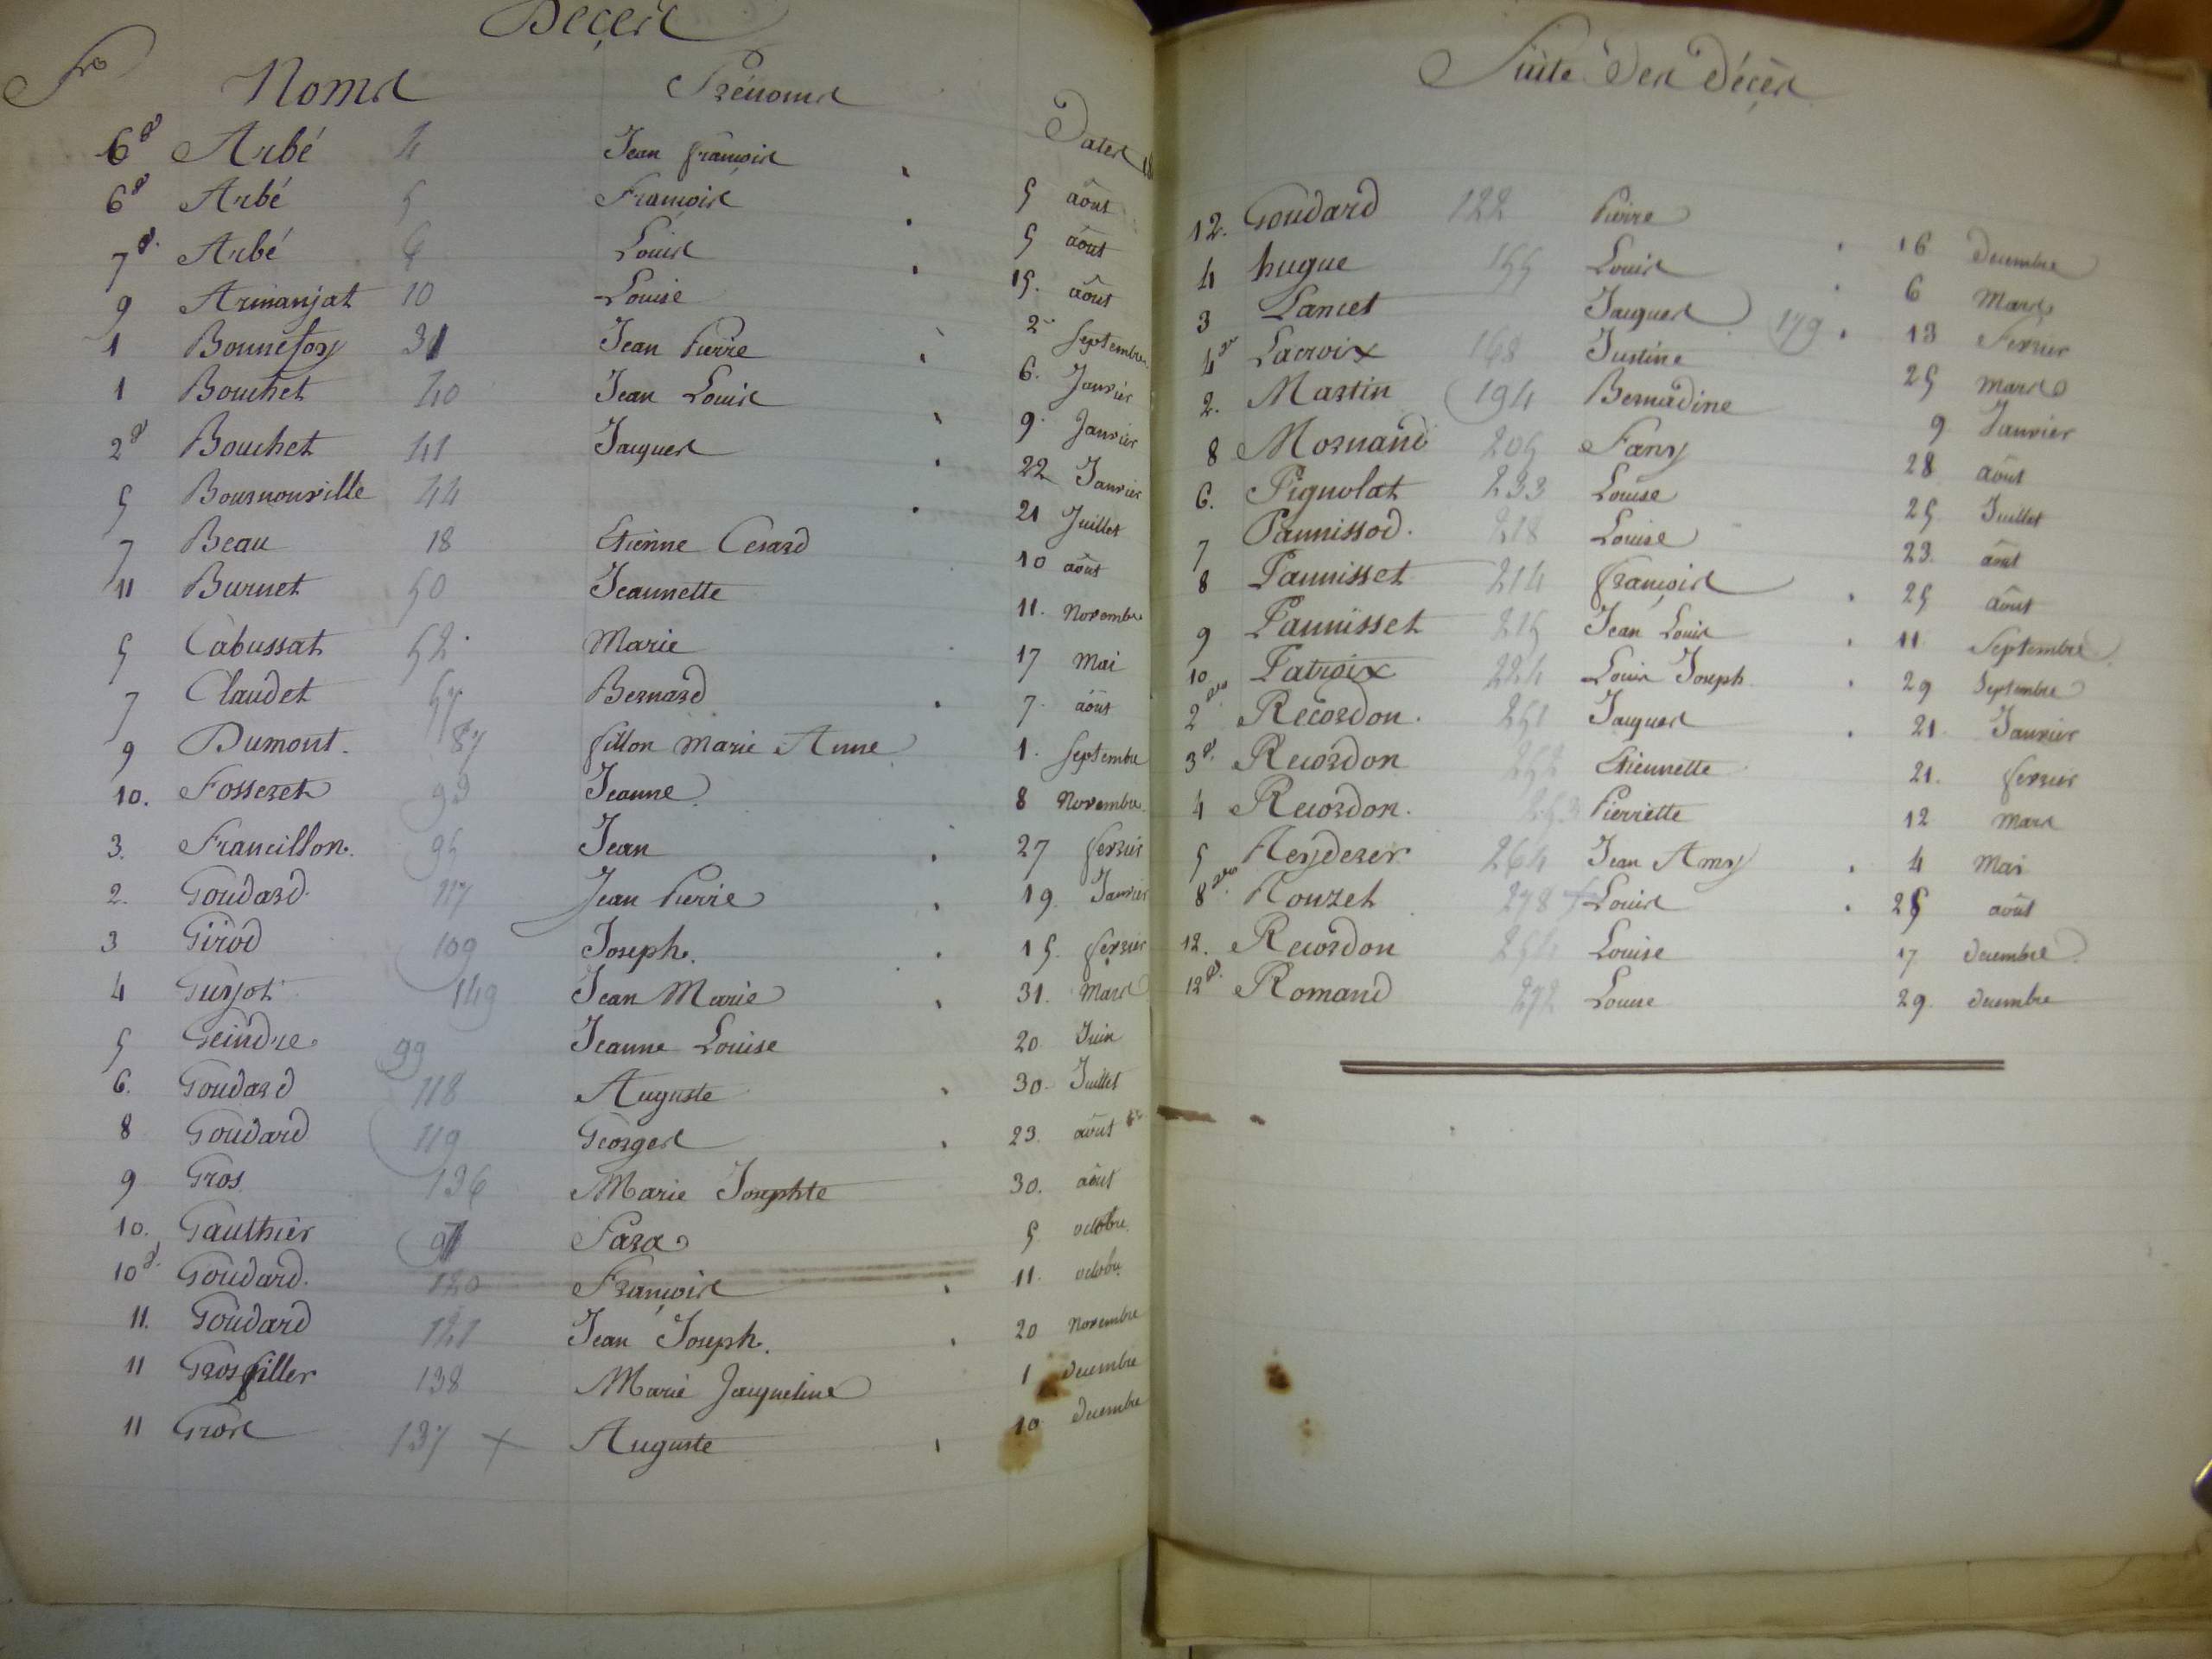 Décès
Fo Noms Prénoms Dates
6 Arbé 4 Jean françois 5 août
6 Arbé 5 François 5 août
7 Arbé 6 Louis 15. août
9 Armanjat 10 Louise 2 Septembre
1 Bonnefoy 31 Jean Pierre 6. Janvier
1 Bouchet 40 Jean Louis 9. Janvier
2 Bouchet 41 Jacques 22 Janvier
5 Bournonville 44 21 Juillet
7 Beau 18 Etienne Cesard 10 août
11 Burnet 50 Jeannette 11. Novembre
5 Cabussat 52. Marie 17 Mai
7 Claudet 67 Bernard 7. août
9 Dumont. 87 fillon Marie Anne 1. Septembre
10. Fosseret 93 Jeanne 8 Novembre
3. Francillon. 95 Jean 27 fevrier
2. Goudard. 117 Jean Pierre 19. Janvier
3 Girod 109 Joseph. 15. fevrier
4 Guyot 149 Jean Marie 31. Mars
5 Geindre 99 Jeanne Louise 20 Juin
6. Goudard 118 Auguste 30. Juillet
8 Goudard 119 Georges 23. août
9 Gros 136 Marie Josephte 30. août
10. Gauthier 97 Sara 5 octobre.
10 Goudard. 120 François 11. octobre
11. Goudard 121 Jean Joseph. 20 Novembre
11 Grosfiller 138 Marie Jacqueline 1 decembre
11 Gros 137 + Auguste 10 decembre
Suite Des Décès
12. Goudard 122 Pierre 16 Decembre
4 hugue 155 Louis 6 Mars
3 Lancet Jacques 179 13 Fevrier
4 Lacroix 168 Justine 25 mars
2. Martin 194 Bernadine 9 Janvier
8 Mornand 205 Fany 28 août
6. Pignolat 233 Louise 25 Juillet
7 Pannissod. 218 Louise 23. août
8 Pannisset 214 françois 25 août
9 Pannisset 215 Jean Louis 11 Septembre
10 Patroix 224 Louis Joseph 29 Septembre
2 Recordon. 251 Jacques 21 Janvier
3 Recordon 252 Etiennette 21. fevrier
4 Recordon. 253 Pierrette 12 mars
5 Reyderer 264 Jean Amy 4 Mai
8 Rouzet 278 + Louis 25 août
12. Recordon 254 Louise 17 decembre
12 Romand 272 Louise 29. decembre